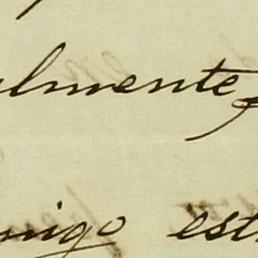 almente,
migo est